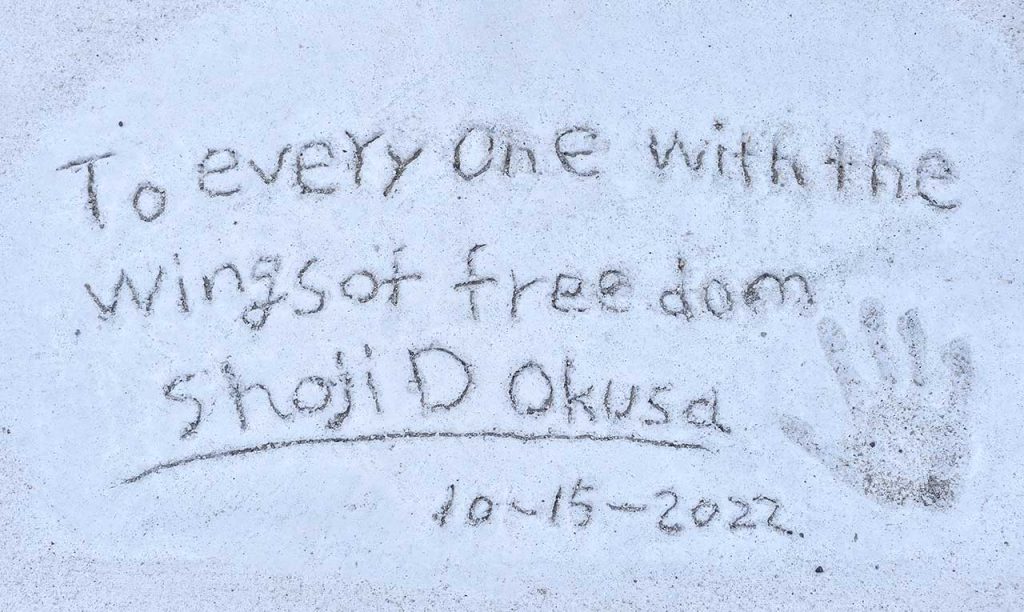 To every one with the
wings of freedom
Shoji D Okusa
10-15-2022